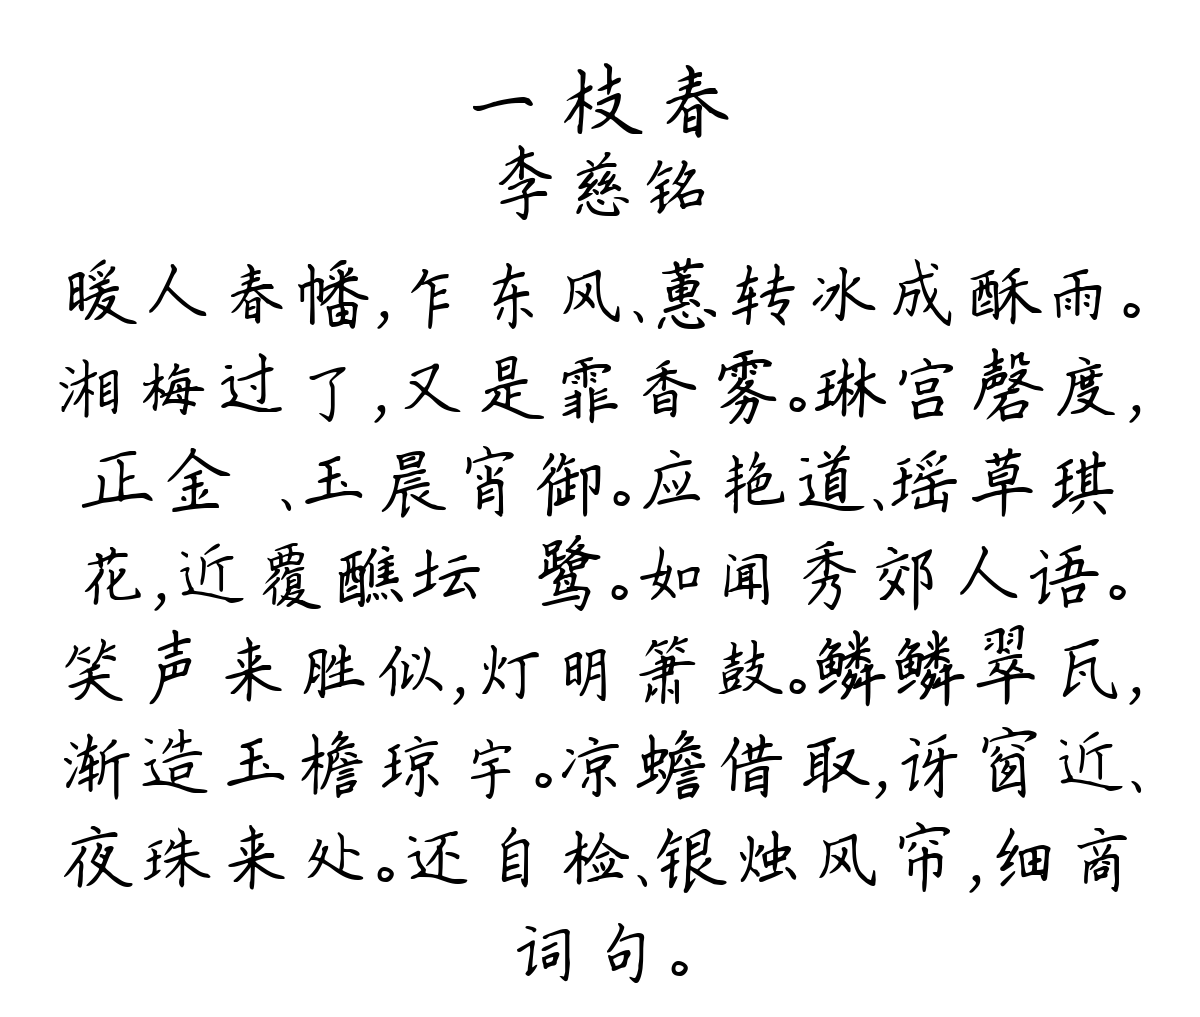 一枝春
李慈铭
暖人春幡,乍东风、蕙转冰成酥雨。
湘梅过了,又是霏香雾。琳宫磬度,
正金 、玉晨宵御。应艳道、瑶草琪
花,近覆醮坛 鹭。如闻秀郊人语。
笑声来胜似,灯明箫鼓。鳞鳞翠瓦,
渐造玉檐琼宇。凉蟾借取,讶窗近、
夜珠来处。还自检、银烛风帘,细商
词句。